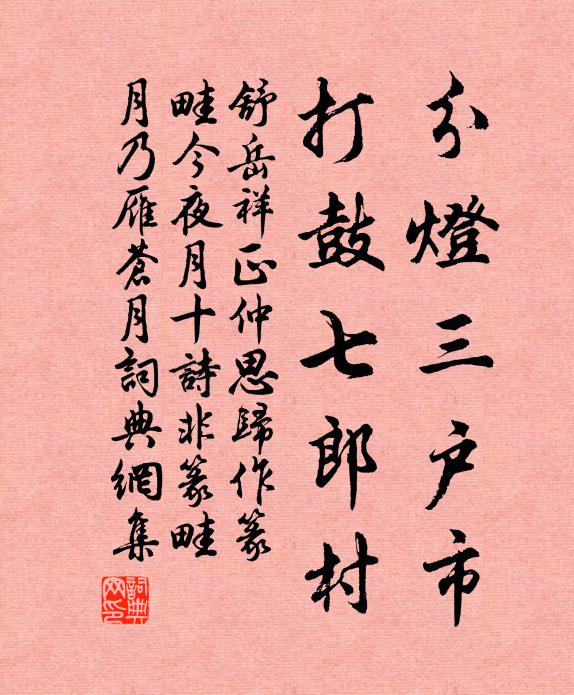 分燈三户市
打鼓七郎村
舒岳祥正仲思歸作篆
畦今夜月十詩非篆畦
月乃雁蒼月詞典網集
詞典网印